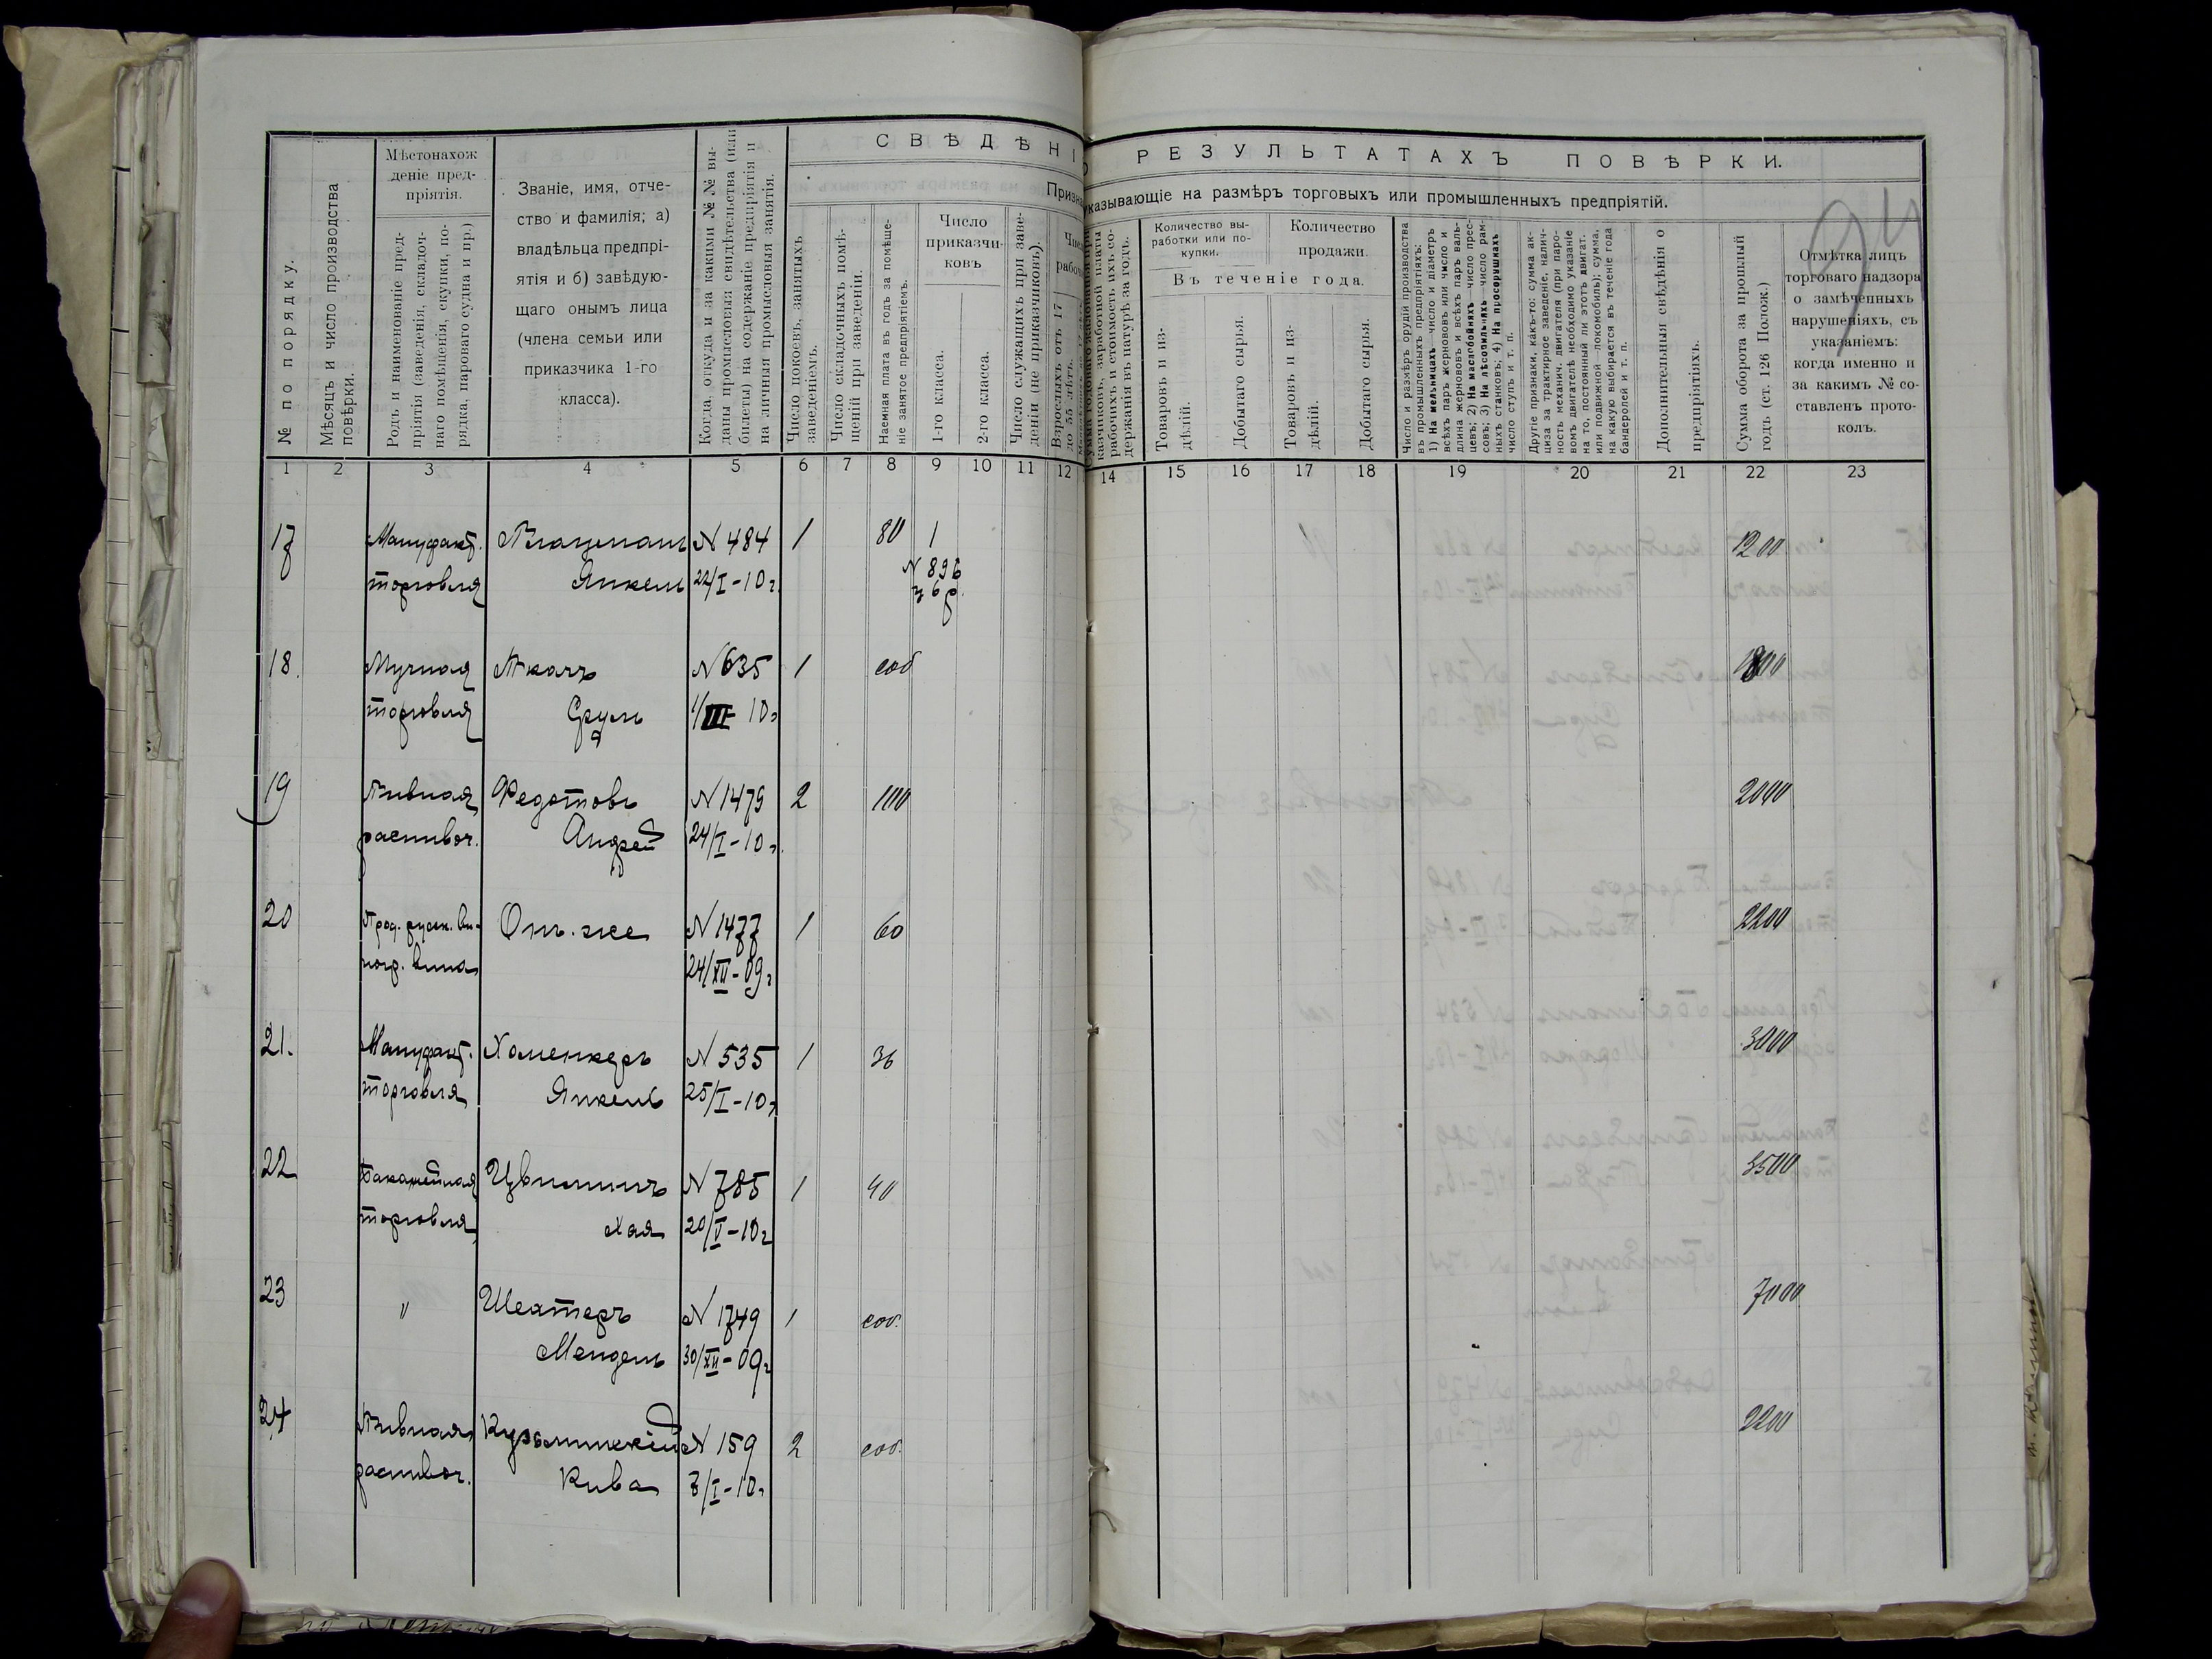 СВѢДѢНІ
О РЕЗУЛЬТАТАХЪ ПОВѢРКИ.
Призна
указывающіе на размѣръ торговыхъ или промышленныхъ предпріятій.
№ по порядку.
Мѣсяцъ и число производства
повѣрки.
Мѣстонахож
деніе пред-
пріятія.
Родъ и наименованіе пред-
пріятія (заведенія, складоч-
наго помѣщенія, скупки, по-
ряда, парового судна и пр.)
Званіе, имя, отче-
ство и фамилія; а)
владѣльца предпрі-
ятія и б) завѣдую-
щаго онымъ лица
(члена семьи или
приказчика 1-го
класса).
Когда, откуда и за какими №№ вы-
даны промысловыя свидѣтельства (или
билеты) на содержаніе предпріятія и
на личныя промысловыя занятія.
Число покоевъ, занятыхъ
заведеніемъ.
Число складочныхъ помѣ-
щеній при заведеніи.
Наемная плата въ годъ за помѣще-
ніе занятое предпріятіемъ.
Число
приказчи-
ковъ
1-го класса.
2-го класса.
Число служащихъ при заве-
деніи (не приказчиковъ).
Взрослыхъ отъ 17
до 55 лѣтъ.
казчиковъ, заработной платы
рабочихъ и стоимость ихъ со-
держанія въ натурѣ за годъ.
Количество вы-
работки или по-
купки.
Количество
продажи.
Въ теченіе года.
Товаровъ и из-
дѣлій.
Добытаго сырья.
Товаровъ и из-
дѣлій.
Добытаго сырья.
Число и размѣръ орудій производства
въ промышленныхъ предпріятіяхъ:
1) На мельницахъ число и діаметръ
всѣхъ паръ жернововъ или число и
длина жернововъ и всѣхъ паръ валь-
цевъ; 2) На маслобойняхъ число прес-
совъ; 3) На лѣсопильняхъ число рам-
ныхъ станковъ; 4) На просорушкахъ
число ступъ и т. п.
Другіе признаки, какъ-то: сумма ак-
циза за трактирное заведеніе, налич-
ность механич. двигателя (при паро-
вомъ двигателѣ необходимо указаніе
на то, постоянный ли этотъ двигат.
или подвижной—локомобиль); сумма,
на какую выбирается въ теченіе года
бандеролей и т. п.
Дополнительныя свѣдѣнія о
предпріятіяхъ.
Сумма оборота за прошлый
годъ (ст. 126 Полож.)
Отмѣтка лицъ
торговаго надзора
о замѣченныхъ
нарушеніяхъ, съ
указаніемъ:
когда именно и
за какимъ № со-
ставленъ прото-
колъ.
1 2 3 4 5 6 7 8 9 10 11 12 14 15 16 17 18 19 20 21 22 23
17 Мануфакт. N 484 1 80 1 1200
торговля Янкель 22/I-10 г. N 896
18. Мучная Ткачъ N 635 1 соб 1800
торговля Сруль 1/III-10 г
19 Пивная Федотовъ N 1479 2 100 2000
распивоч. Андрей 24/I-10 г.
20 Прод. русск. ви- Онъ-же N 1477 1 60 2200
ногр. вина 24/XII-09 г
21. Мануфакт. Хаменкеръ N 535 1 36 3000
торговля Янкель 25/I-10 г
22 Бакалейная N 785 1 40 3500
торговля Хая 20/V-10 г
23 " Шехтеръ N 1749 1 соб. 7000
Мендель 30/XII-09 г
24 Пивная N 159 2 соб. 2200
распивоч. Кива 3/I-10 г